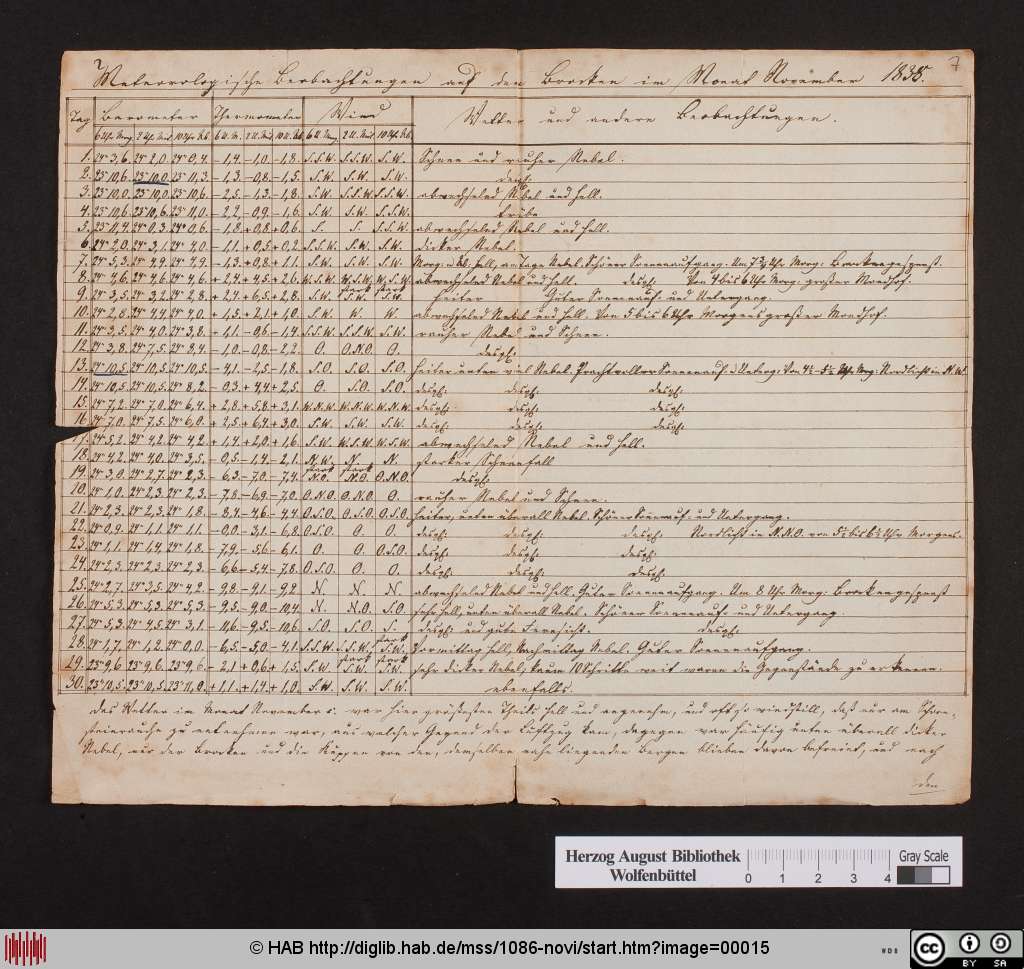 7
Meteorologische Beobachtungen auf dem Brocken im Monat November 1835.
Tag Barometer Thermometer Wind Wetter und andere Beobachtungen.
6 Uhr Morg. 2 Uhr Mitt. 10 Uhr Ab. 6 U. M. 2 U. Mit. 10 U. Ab. 6 U. Morg. 2 U. Mit. 10 Uhr Ab.
1. 24" 3,6. 24" 2,0. 24" 0,4. - 1,4. - 1,0. - 1,8. S.S.W. S.S.W. S.W. Schnee und rauher Nebel.
2. 23" 10,6. 23" 10,0. 23" 11,3. - 1,3. - 0,8. - 1,5. S.W. S.W. S.W. desgl.
3. 23" 10,0. 23" 10,0. 23" 10,6. - 2,5. - 1,3. - 1,8. S.W. S.W. S.W. abwechselnd Nebel und hell.
4. 23" 10,6. 23" 10,6. 23" 11,0. - 2,2. - 0,9. - 1,6. S.W. S.W. S.S.W. trübe
5. 23" 11,4. 24" 0,3. 24" 0,6. - 1,8. + 0,8. + 0,6. S. S. S.S.W. abwechselnd Nebel und hell.
6. 24" 2,0. 24" 3,1. 24" 4,0. - 1,1. + 0,5. + 0,2. S.S.W. S.W. S.W. dicker Nebel.
7. 24" 5,3. 24" 4,9. 24" 4,9. - 1,3. + 0,8. + 1,1. S.W. S.W. S.W. Morg. u. Ab. hell, am Tage Nebel. Schöner Sonnenaufgang. Um 7¾ Uhr Morg. Brockengespenst.
8. 24" 4,6. 24" 4,6. 24" 4,6. + 2,4. + 4,5. + 2,6. W.S.W. W.S.W. W.S.W. abwechselnd Nebel und hell. desgl. Von 4 bis 6 Uhr Morg. großer Mondhof.
9. 24" 3,5. 24" 3,2. 24" 2,8. + 2,4. + 6,5. + 2,8. S.W. stark S.W. stark S.W. heiter Guter Sonnenauf- und Untergang.
10. 24" 2,8. 24" 4,4. 24" 4,0. + 1,5. + 2,1. + 1,0. S.W. W. W. abwechselnd Nebel und hell. Von 5 bis 6¾ Uhr Morgens großer Mondhof.
11. 24" 3,5. 24" 4,0. 24" 3,8. + 1,1. - 0,6. - 1,4. S.S.W. S.S.W. S.W. rauher Nebel und Schnee.
12. 24" 3,8. 24" 7,5. 24" 8,4. - 1,0. - 0,8. - 2,2. O. O.N.O. O. desgl.
13. 24" 10,5. 24" 10,5. 24" 10,5. - 4,1. - 2,5. - 1,8. S.O. S.O. S.O. heiter unten viel Nebel. Prachtvoller Sonnenauf- u Unterg. Von 4½ - 5½ Uhr Morg. Nordlicht in N.W.
14. 24" 10,5. 24" 10,5. 24" 8,2. - 0,3. + 4,4. + 2,5. O. S.O. S.O. desgl. desgl. desgl.
15. 24" 7,2. 24" 7,0. 24" 6,4. + 2,8. + 5,8. + 3,1. W.N.W. W.N.W. W.N.W. desgl. desgl. desgl.
16. 24" 7,0. 24" 7,5. 24" 6,0. + 2,5. + 6,4. + 3,0. S.W. S.W. S.W. desgl. desgl. desgl.
17. 24" 5,2. 24" 4,2. 24" 4,2. + 1,4. + 2,0. + 1,6. S.W. W.S.W. W.S.W. abwechselnd Nebel und hell.
18. 24" 4,2. 24" 4,0. 24" 3,5. - 0,5. - 1,4. - 2,1. N.W. N. N. starker Schneefall
19. 24" 3,0. 24" 2,7. 24" 2,3. - 6,3. - 7,0. - 7,4. stark N.O. stark N.O. O.N.O. desgl.
20. 24" 1,0. 24" 2,3. 24" 2,3. - 7,8. - 6,9. - 7,0. O.N.O. O.N.O. O. rauher Nebel und Schnee.
21. 24" 2,3. 24" 2,3. 24" 1,8. - 8,4. - 4,6. - 4,4. O.S.O. O.S.O. O.S.O. heiter, unten überall Nebel. Schöner Sonnenauf- und Untergang.
22. 24" 0,9. 24" 1,1. 24" 1,1. - 0,0. - 3,1. - 6,8. O.S.O. O. O. desgl. desgl. desgl. Nordlicht in N.N.O. von 5½ bis 6¼ Uhr Morgens.
23. 24" 1,1. 24" 1,4. 24" 1,8. - 7,9. - 5,6. - 6,1. O. O. O.S.O. desgl. desgl. desgl.
24. 24" 2,3. 24" 2,3. 24" 2,3. - 6,6. - 5,4. - 7,8. O.S.O. O. O. desgl. desgl. desgl.
25. 24" 2,7. 24" 3,5. 24" 4,2. - 9,8. - 9,1. - 9,2. N. N. N. abwechselnd Nebel und hell. Guter Sonnenaufgang. Um 8 Uhr Morg. Brockengespenst
26. 24" 5,3. 24" 5,3. 24" 5,3. - 9,5. - 9,0. - 10,4. N. N.O. S.O. sehr hell, unten überall Nebel. Schöner Sonnenauf- und Untergang.
27. 24" 5,3. 24" 4,5. 24" 3,1. - 11,6. - 9,5. - 10,6. S.O. S.O. S. desgl. und gute Fernsicht. desgl.
28. 24" 1,7. 24" 1,2. 24" 0,0. - 6,5. - 5,0. - 4,1. S.S.W. S.S.W. stark S.W. Vormittag hell, Nachmittag Nebel. Guter Sonnenaufgang.
29. 23" 9,6. 23" 9,6. 23" 9,6. - 2,1. + 0,6. + 1,5. S.W. stark S.W. stark S.W. sehr dicker Nebel, kaum 10 Schritte weit waren die Gegenstände zu erkennen.
30. 23" 10,5. 23" 10,5. 23" 11,0. + 1,1. + 1,4. + 1,0. S.W. S.W. S.W. ebenfalls.
Das Wetter im Monat November c. war hier größesten Theils hell und angenehm, und oft so windstill, daß nur am Schorn-
steinrauche zu entnehmen war, aus welcher Gegend der Luftzug kam, dagegen war häufig unten überall dicker
Nebel, nur der Brocken und die Kuppen von den, demselben nahe liegenden Bergen blieben davon befreiet, und nach
den
Herzog August Bibliothek
Wolfenbüttel
0 1 2 3 4
Gray Scale
© HAB http://diglib.hab.de/mss/1086-novi/start.htm?image=00015
WDB
cc BY SA